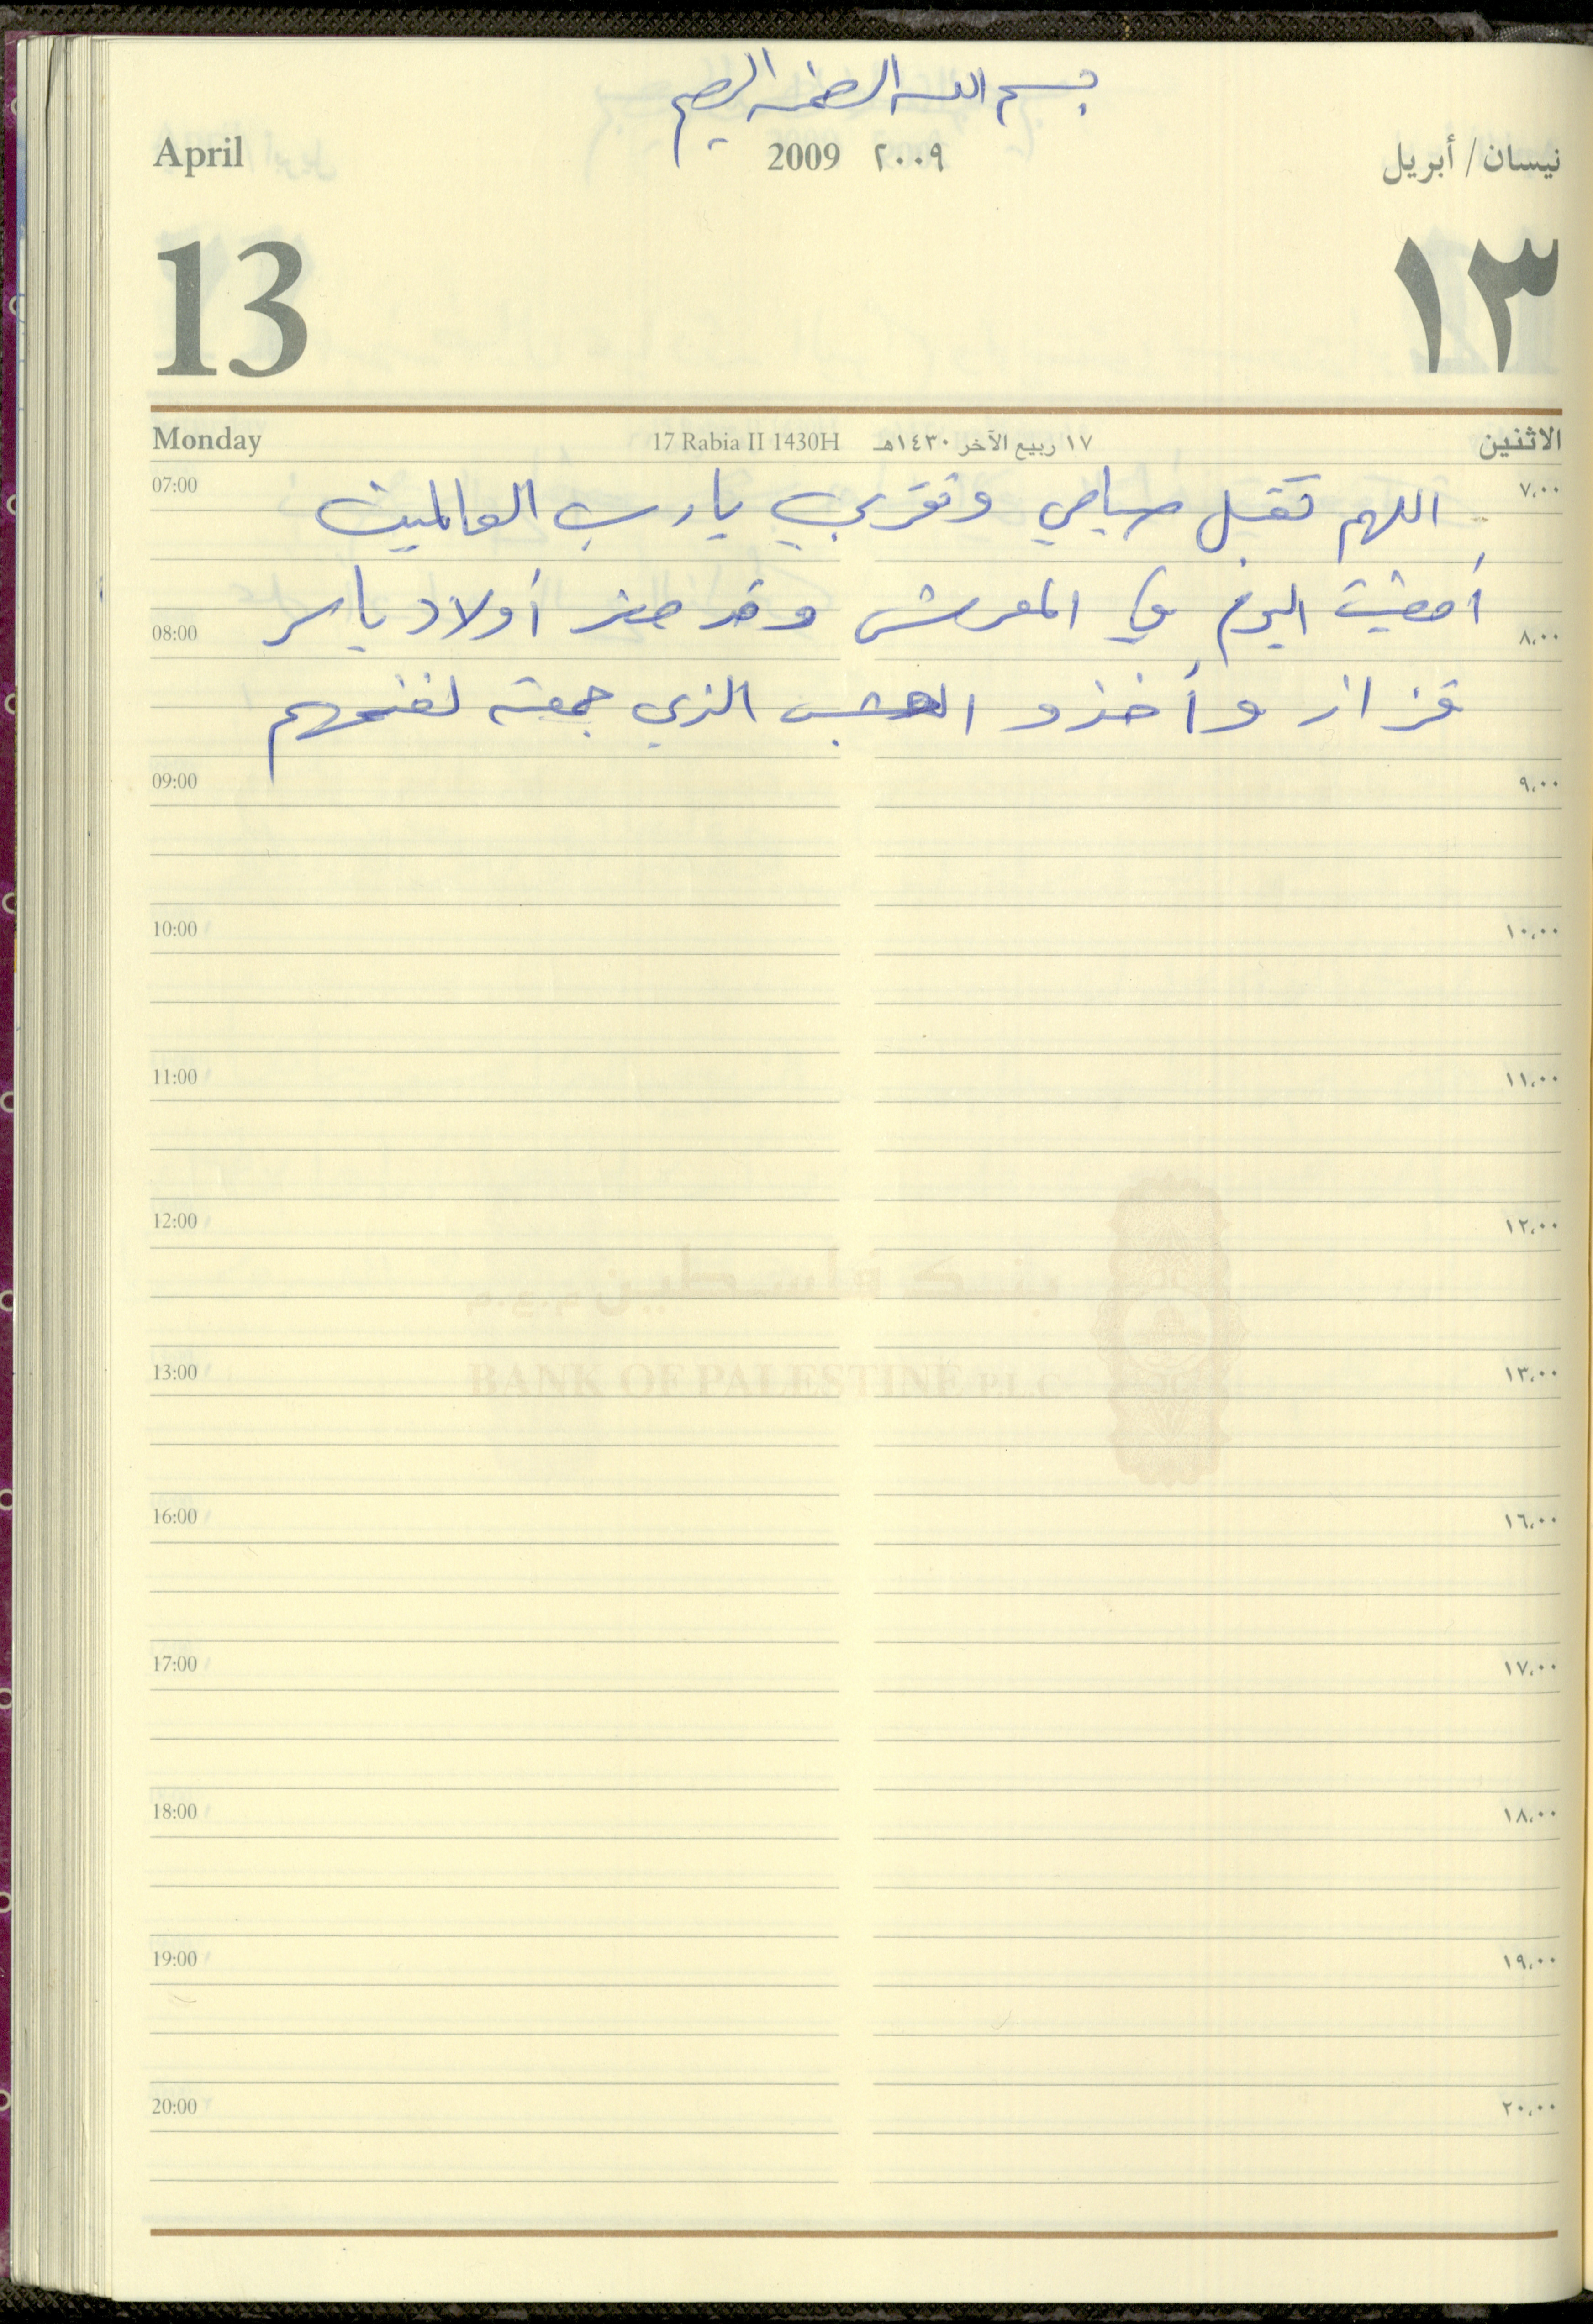 بسم الله الرحمن الرحيم
April 2009 ٢٠٠٩ نيسان / أبريل
13 ١٣
Monday 17 Rabia II 1430H ١٧ ربيع الآخر ١٤٣٠هـ الاثنين
07:00 ٧,٠٠
اللهم تقبل صيامي وتقربي يا رب العالمين
أمضيت اليوم في المعرش وقد حضر أولاد ياسر
08:00 ٨,٠٠
قزاز وأخذو العشب الذي جمعته لغنمهم
09:00 ٩,٠٠
10:00 ١٠,٠٠
11:00 ١١,٠٠
12:00 ١٢,٠٠
بنك فلسطين م.ع.م
13:00 ١٣,٠٠
BANK OF PALESTINE PLC
16:00 ١٦,٠٠
17:00 ١٧,٠٠
18:00 ١٨,٠٠
19:00 ١٩,٠٠
20:00 ٢٠,٠٠